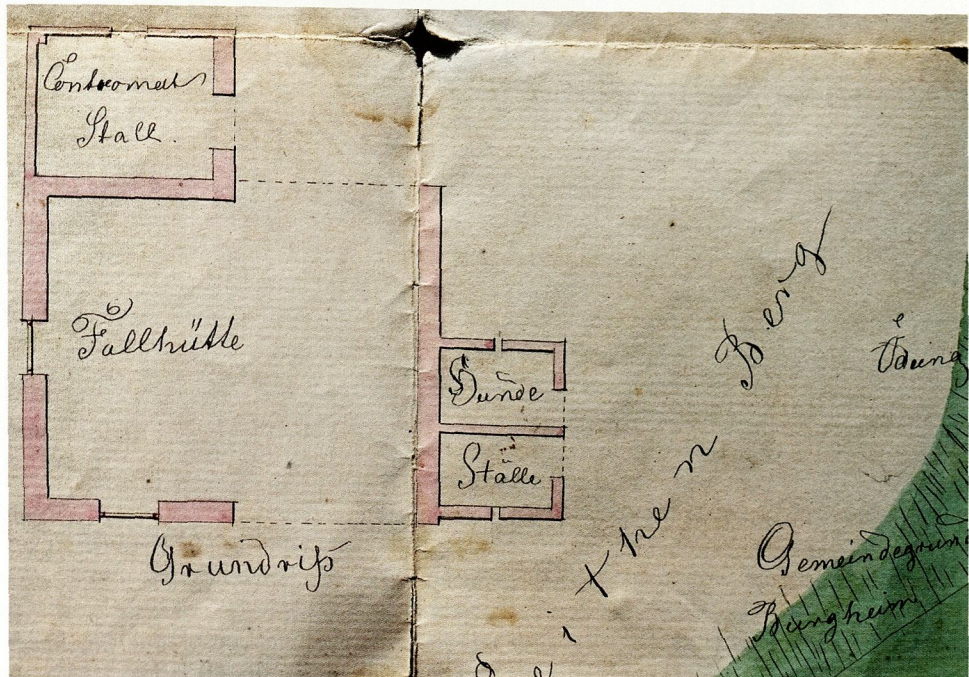 Contromatz
Stall.
Fallhütte
Hunde
Ställe
Grundriß
Berg
Ödung
Gemeindegrund
Burgheim